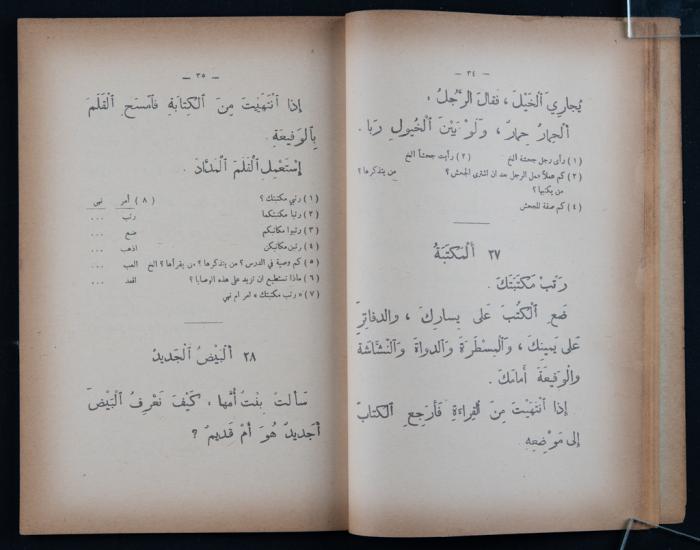 — ٣٤ —
يُجَارِي ٱلْخَيْلَ ، فَقَالَ ٱلرَّجُلُ :
اَلْحِمَارُ حِمَارٌ ، وَلَوْ بَيْنَ ٱلْخُيُولِ رَبَا .
( ١ ) رأى رجل جحشة الخ ( ٢ ) رأيت جحشاً الخ
( ٣ ) كم عملاً عمل الرجل بعد ان اشترى الجحش ؟ من يتذكرها ؟
من يكتبها ؟
( ٤ ) كم صفة للجحش
٢٧ اَلْمَكْتَبَةُ
رَتِّبْ مَكْتَبَتَكَ .
ضَعِ ٱلْكُتُبَ عَلَى يَسَارِكَ ، وَٱلدَّفَاتِرَ
عَلَى يَمِينِكَ ، وَٱلْمِسْطَرَةَ وَٱلدَّوَاةَ وَٱلنَّشَّاشَةَ
وَٱلْوَفِيعَةَ أَمَامَكَ .
إِذَا ٱنْتَهَيْتَ مِنَ ٱلْقِرَاءَةِ فَأَرْجِعِ ٱلْكِتَابَ
إِلَى مَوْضِعِهِ .
— ٣٥ —
إِذَا ٱنْتَهَيْتَ مِنَ ٱلْكِتَابَةِ فَٱمْسَحِ ٱلْقَلَمَ
بِٱلْوَفِيعَةِ .
إِسْتَعْمِلِ ٱلْقَلَمَ ٱلْمَدَّادَ .
( ١ ) رتبي مكتبتك ؟ ( ٨ ) أمر نهي
( ٢ ) رتبا مكتبتكما رتب ...
( ٣ ) رتبوا مكاتبكم ضع ...
( ٤ ) رتبن مكاتبكن اذهب ...
( ٥ ) كم وصية في الدرس ؟ من يتذكرها ؟ من يقرأها ؟ الخ العب ...
( ٦ ) ماذا تستطيع ان تزيد على هذه الوصايا ؟ اقعد ...
( ٧ ) « رتب مكتبتك » امر ام نهي
٢٨ اَلْبَيْضُ ٱلْجَدِيدُ
سَأَلَتْ بِنْتٌ أُمَّهَا ، كَيْفَ نَعْرِفُ ٱلْبَيْضَ
أَجَدِيدٌ هُوَ أَمْ قَدِيمٌ ؟